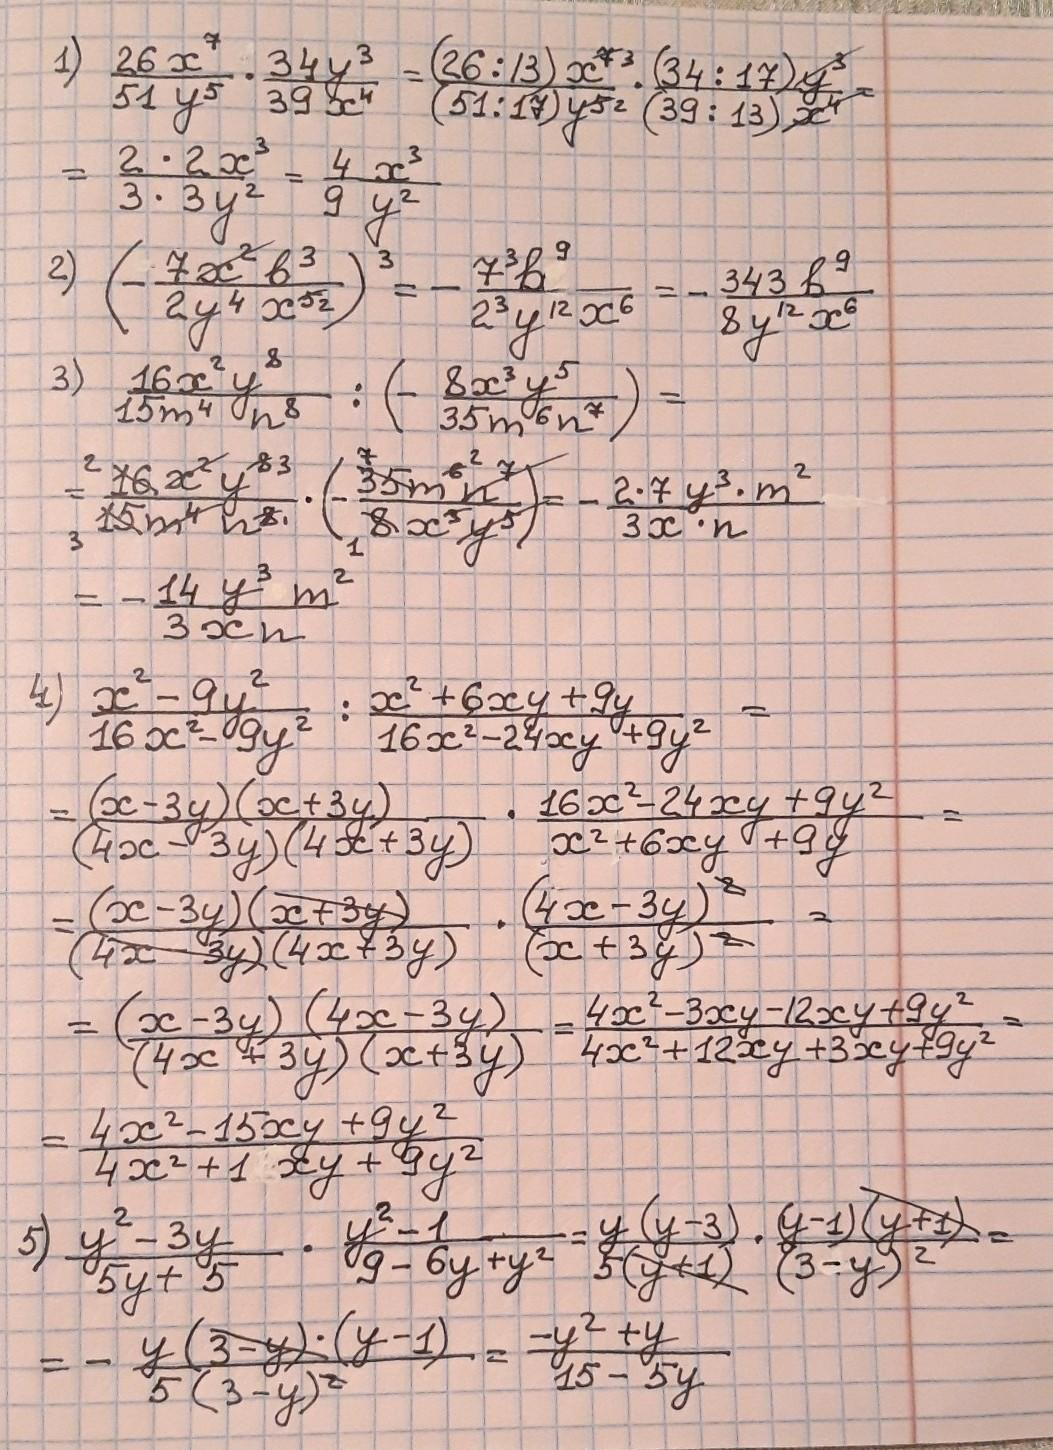 1) 26x⁷/51y⁵ · 34y³/39x⁴ = (26:13)x⁷ ³/(51:17)y⁵ ² · (34:17)y³/(39:13)x⁴ =
= 2·2x³/3·3y² = 4x³/9y²
2) (- 7x²b³/2y⁴x⁵ ²)³ = - 7³b⁹/2³y¹²x⁶ = - 343b⁹/8y¹²x⁶
3) 16x²y⁸/15m⁴n⁸ : (- 8x³y⁵/35m⁶n⁷) =
= 2 16x²y⁸ ³/3 15m⁴n⁸ · (- 7 35m⁶ ²n⁷/1 8x³y⁵) = - 2·7y³·m²/3x·n
= - 14y³m²/3xn
4) x²-9y²/16x²-9y² : x²+6xy+9y/16x²-24xy+9y² =
= (x-3y)(x+3y)/(4x-3y)(4x+3y) · 16x²-24xy+9y²/x²+6xy+9y =
= (x-3y)(x+3y)/(4x-3y)(4x+3y) · (4x-3y)²/(x+3y)² =
= (x-3y)(4x-3y)/(4x+3y)(x+3y) = 4x²-3xy-12xy+9y²/4x²+12xy+3xy+9y² =
= 4x²-15xy+9y²/4x²+1 xy+9y²
5) y²-3y/5y+5 · y²-1/9-6y+y² = y(y-3)/5(y+1) · (y-1)(y+1)/(3-y)² =
= - y(3-y)·(y-1)/5(3-y)² = -y²+y/15-5y